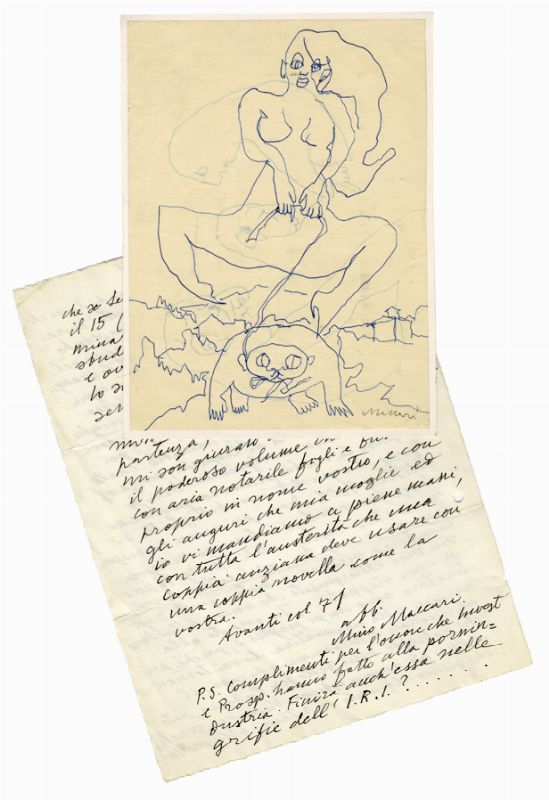 Maccari
che se
il 15 (
mina
stud
e ov
lo s
ser
partenza,
mi son giurato
il poderoso volume in
con aria notarile fogli e
proprio in nome vostro, e con
gli auguri che mia moglie ed
io vi mandiamo a piene mani,
con tutta l'austerità che una
coppia anziana deve usare con
una coppia novella come la
vostra.
Avanti col 71
aff.
Mino Maccari.
P.S. Complimenti per l'onore che Invest
e Prosp. hanno fatto alla pornin=
dustria. Finirà anch'essa nelle
grifie dell' I.R.I.? .......